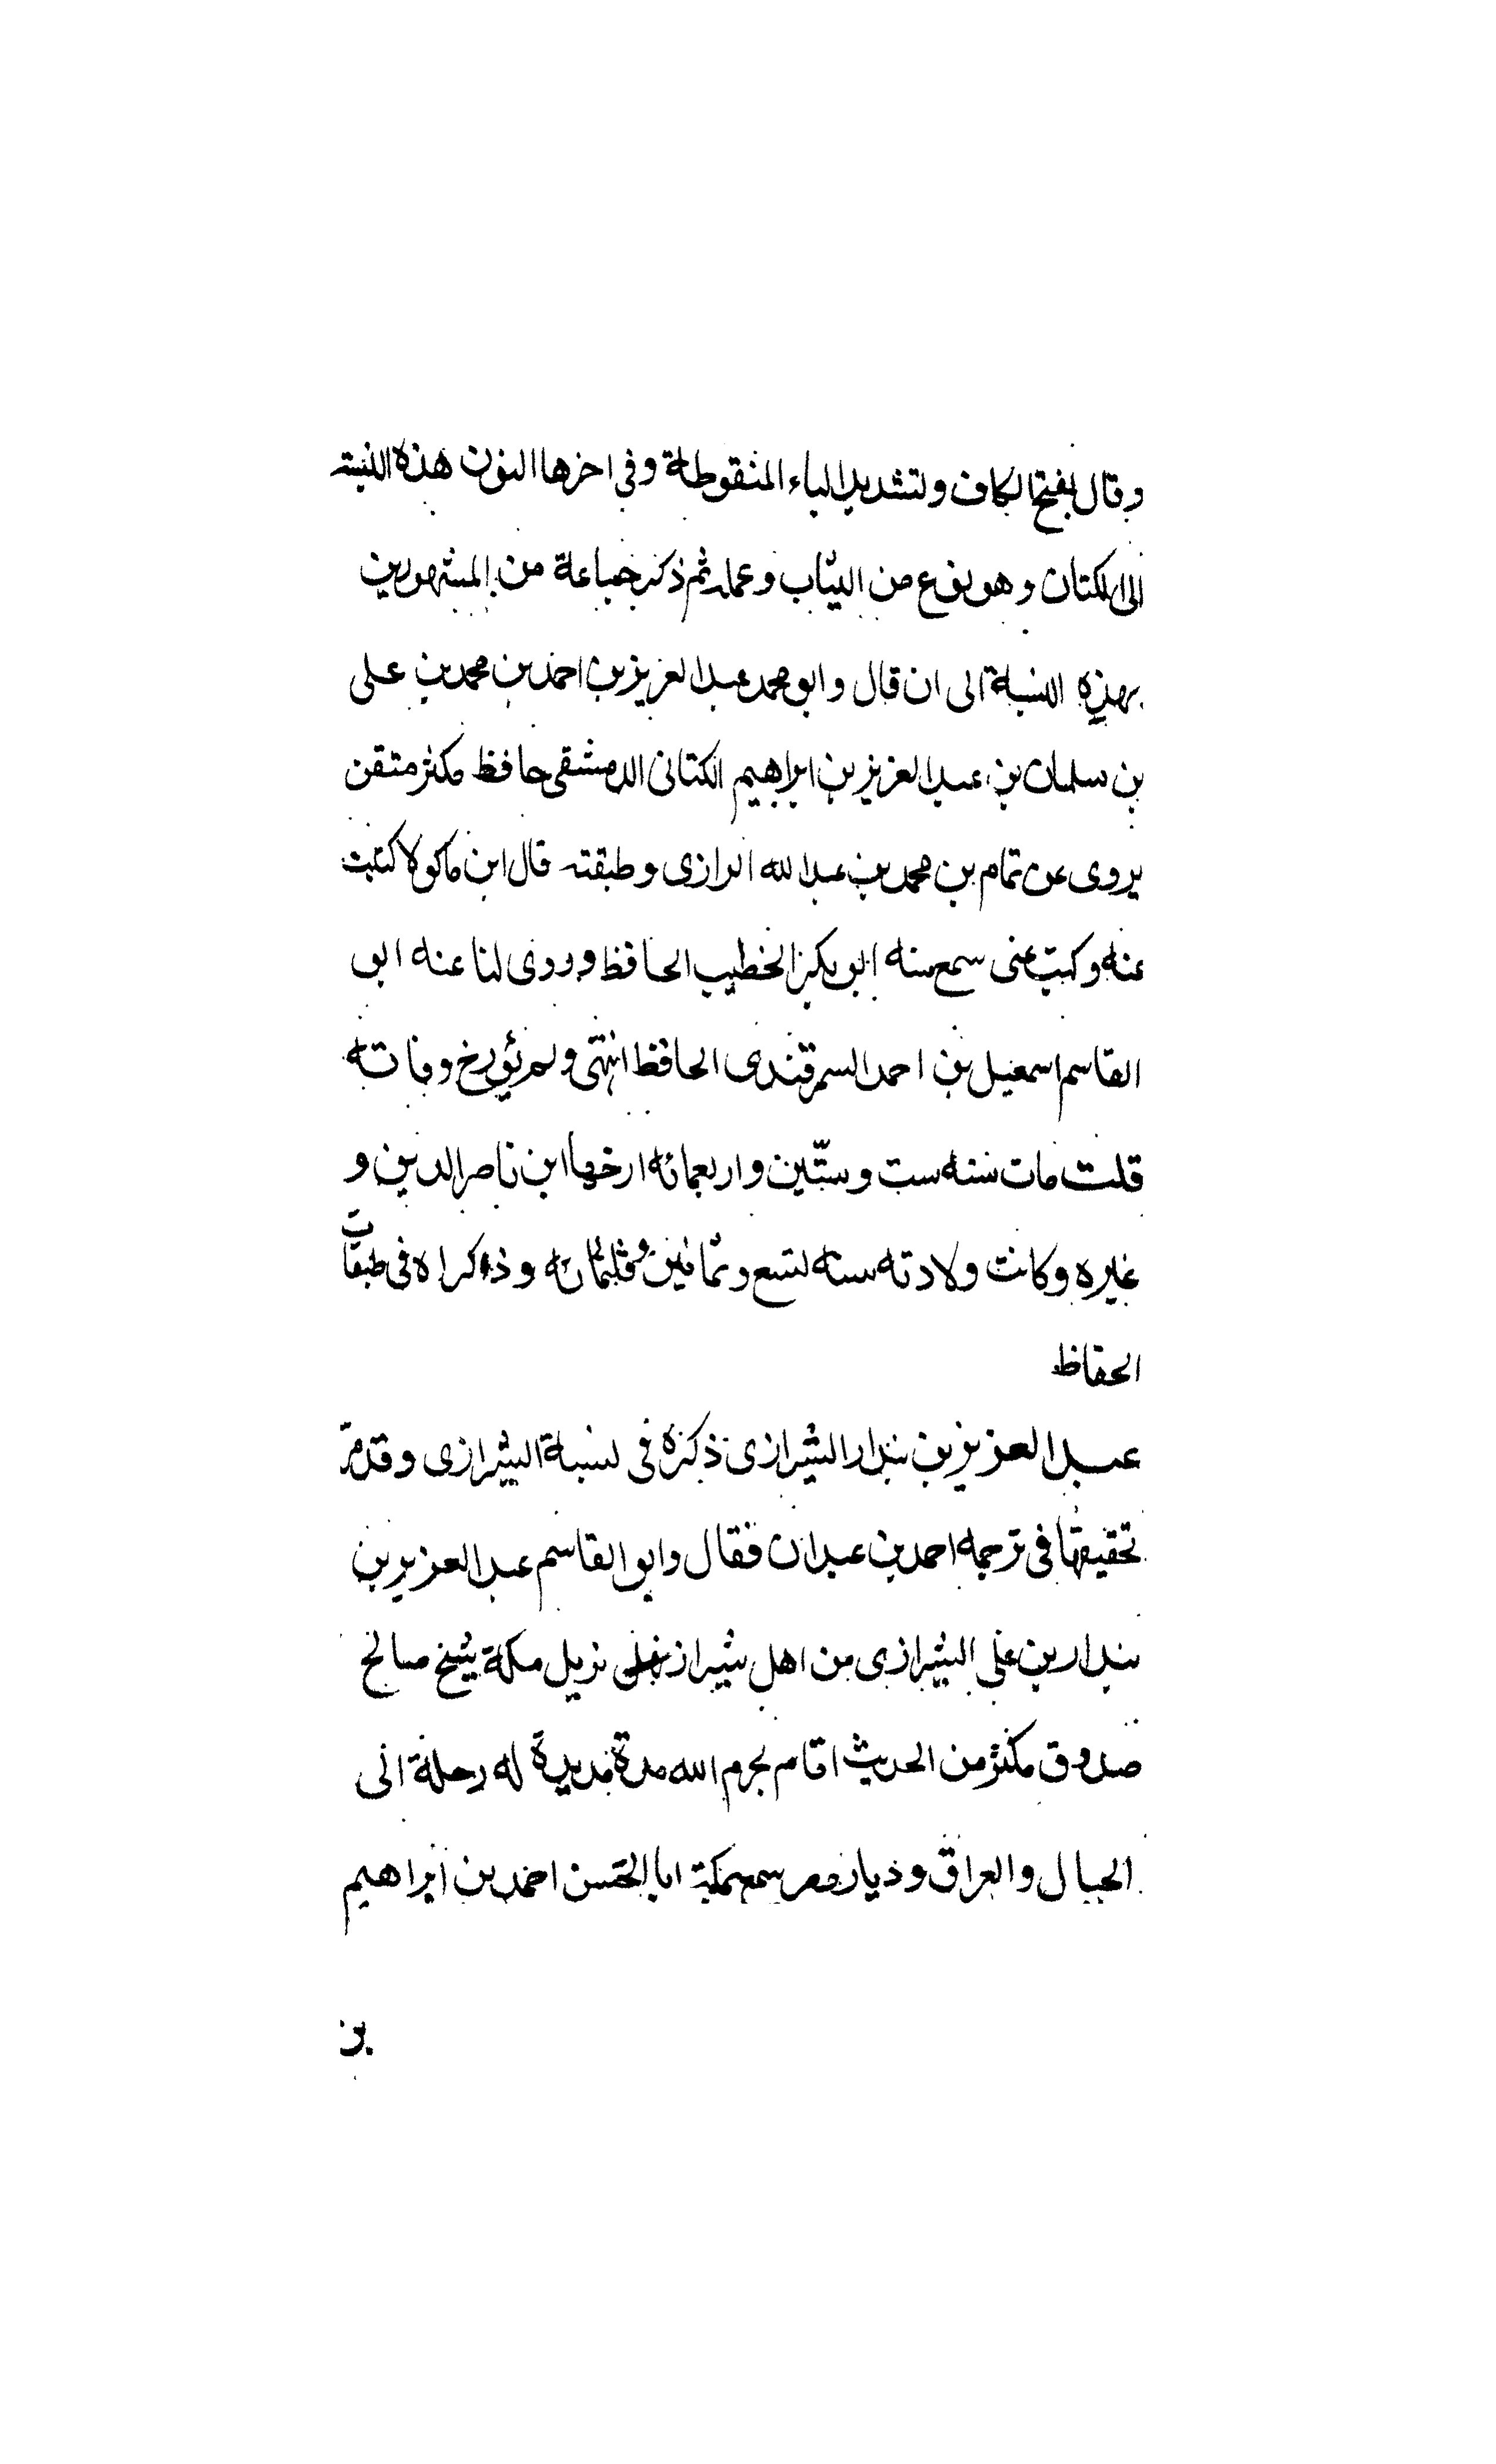 وقال بفتح الكاف وتشديد الياء المنقوطة وفي اخرها النون هذه النسبة
الى الكتان وهو نوع من الثياب وعمله ثم ذكر جماعة من المشهورين
بهذه النسبة الى ان قال وابو محمد عبد العزيز بن احمد بن محمد بن على
بن سلمان بن عبد العزيز بن ابراهيم الكتانى الدمشقى حافظ مكثر متقن
يروى عن تمام بن محمد بن عبد الله الرازى وطبقته قال ابن ماكولا كتبت
عنه وكتب عنى سمع منه ابو بكر الخطيب الحافظ وروى لنا عنه ابو
القاسم اسمعيل بن احمد السمرقندى الحافظ انتهى ولم يؤرخ وفاته
قلت مات سنه ست وستين واربعمائه ارخها ابن ناصر الدين و
غيره وكانت ولادته سنه تسع وثمانين وثلثمائه وذكراه فى طبقات
الحفاظ
عبد العزيز بن بندار الشيرازى ذكره فى نسبة الشيرازى وقد مر
تحقيقها فى ترجمه احمد بن عبدان فقال وابو القاسم عبد العزيز بن
بندار بن على الشيرازى من اهل شيراز نزيل مكة شيخ صالح
صدوق مكثر من الحديث اقام بحرم الله مدة مديدة له رحلة الى
الجبال والعراق وديار مصر سمع بمكة ابا الحسن احمد بن ابراهيم
بن